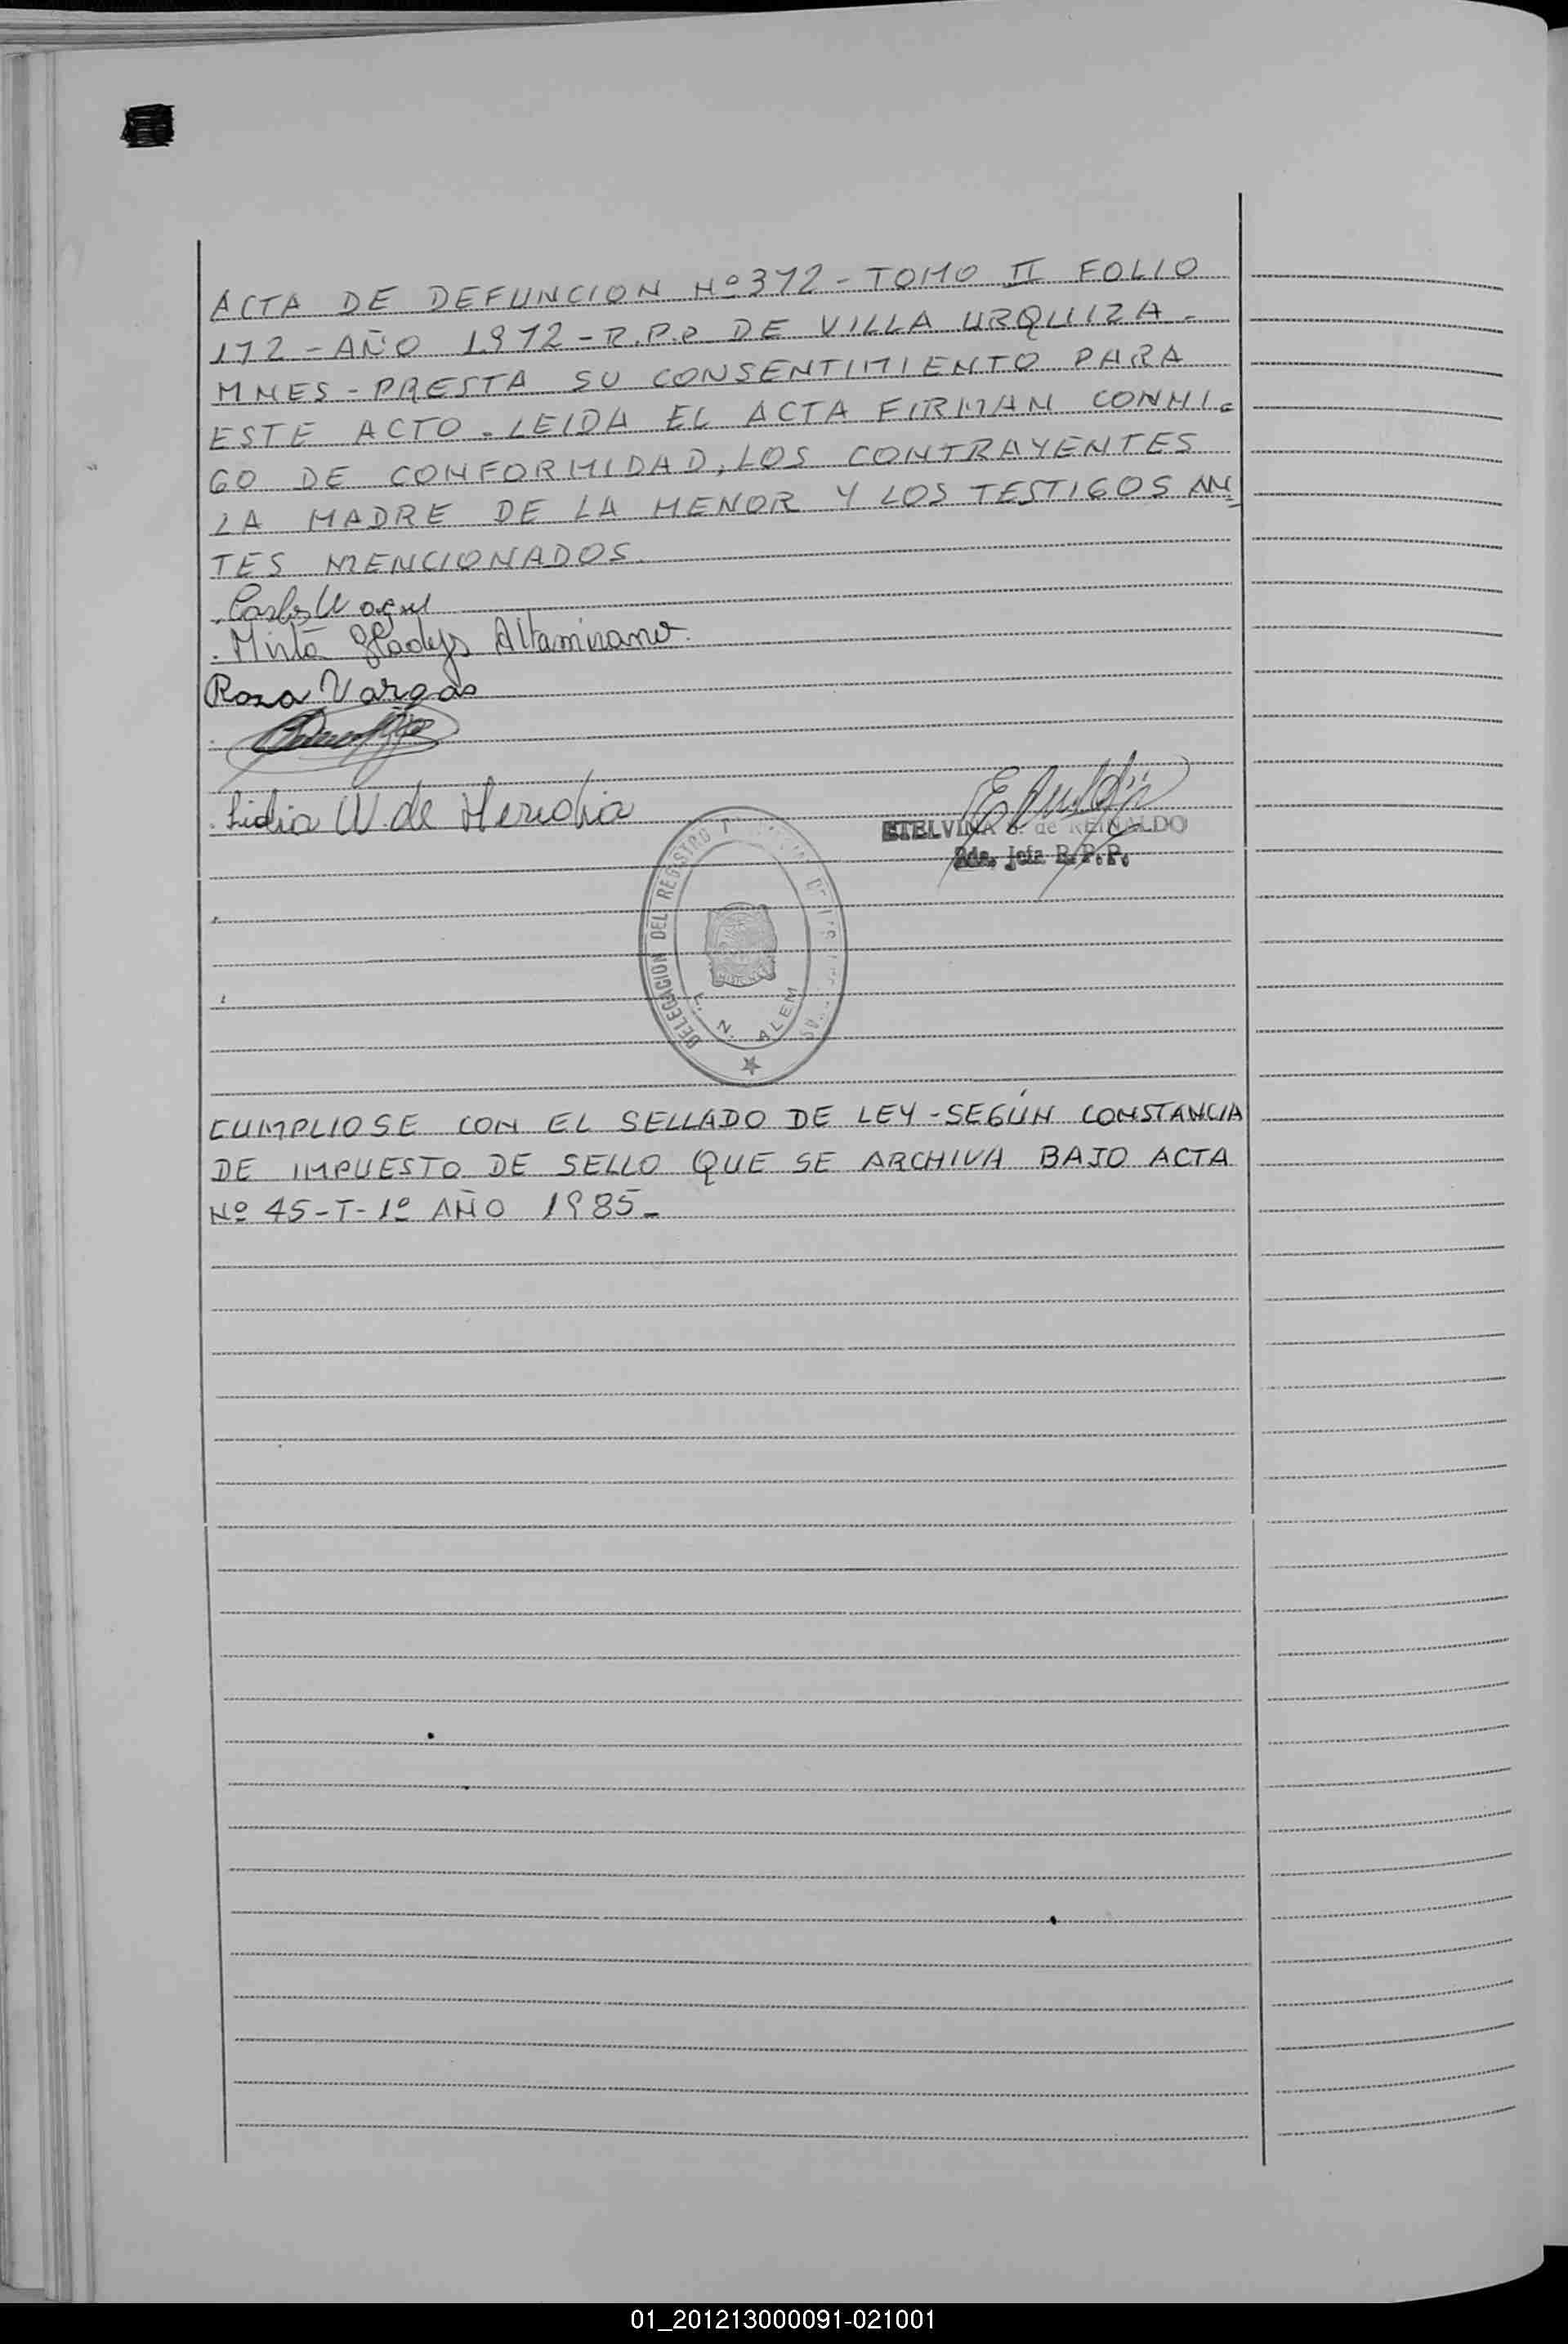 ACTA DE DEFUNCION Nº 372 - TOMO II FOLIO
172 - AÑO 1972 - R.P.P. DE VILLA URQUIZA -
MNES - PRESTA SU CONSENTIMIENTO PARA
ESTE ACTO. LEIDA EL ACTA FIRMAN CONMI-
GO DE CONFORMIDAD, LOS CONTRAYENTES
LA MADRE DE LA MENOR Y LOS TESTIGOS AN
TES MENCIONADOS.
Carlos W
Mirta Gladys Altamirano
Rosa Vargas
Lidia W. de Heredia
ETELVINA S. de REINALDO
Jefa R.P.P.
DELEGACION DEL REGISTRO
L. N. ALEM
CUMPLIOSE CON EL SELLADO DE LEY - SEGÚN CONSTANCIA
DE IMPUESTO DE SELLO QUE SE ARCHIVA BAJO ACTA
Nº 45 - T - 1º AÑO 1985 -
01_201213000091-021001